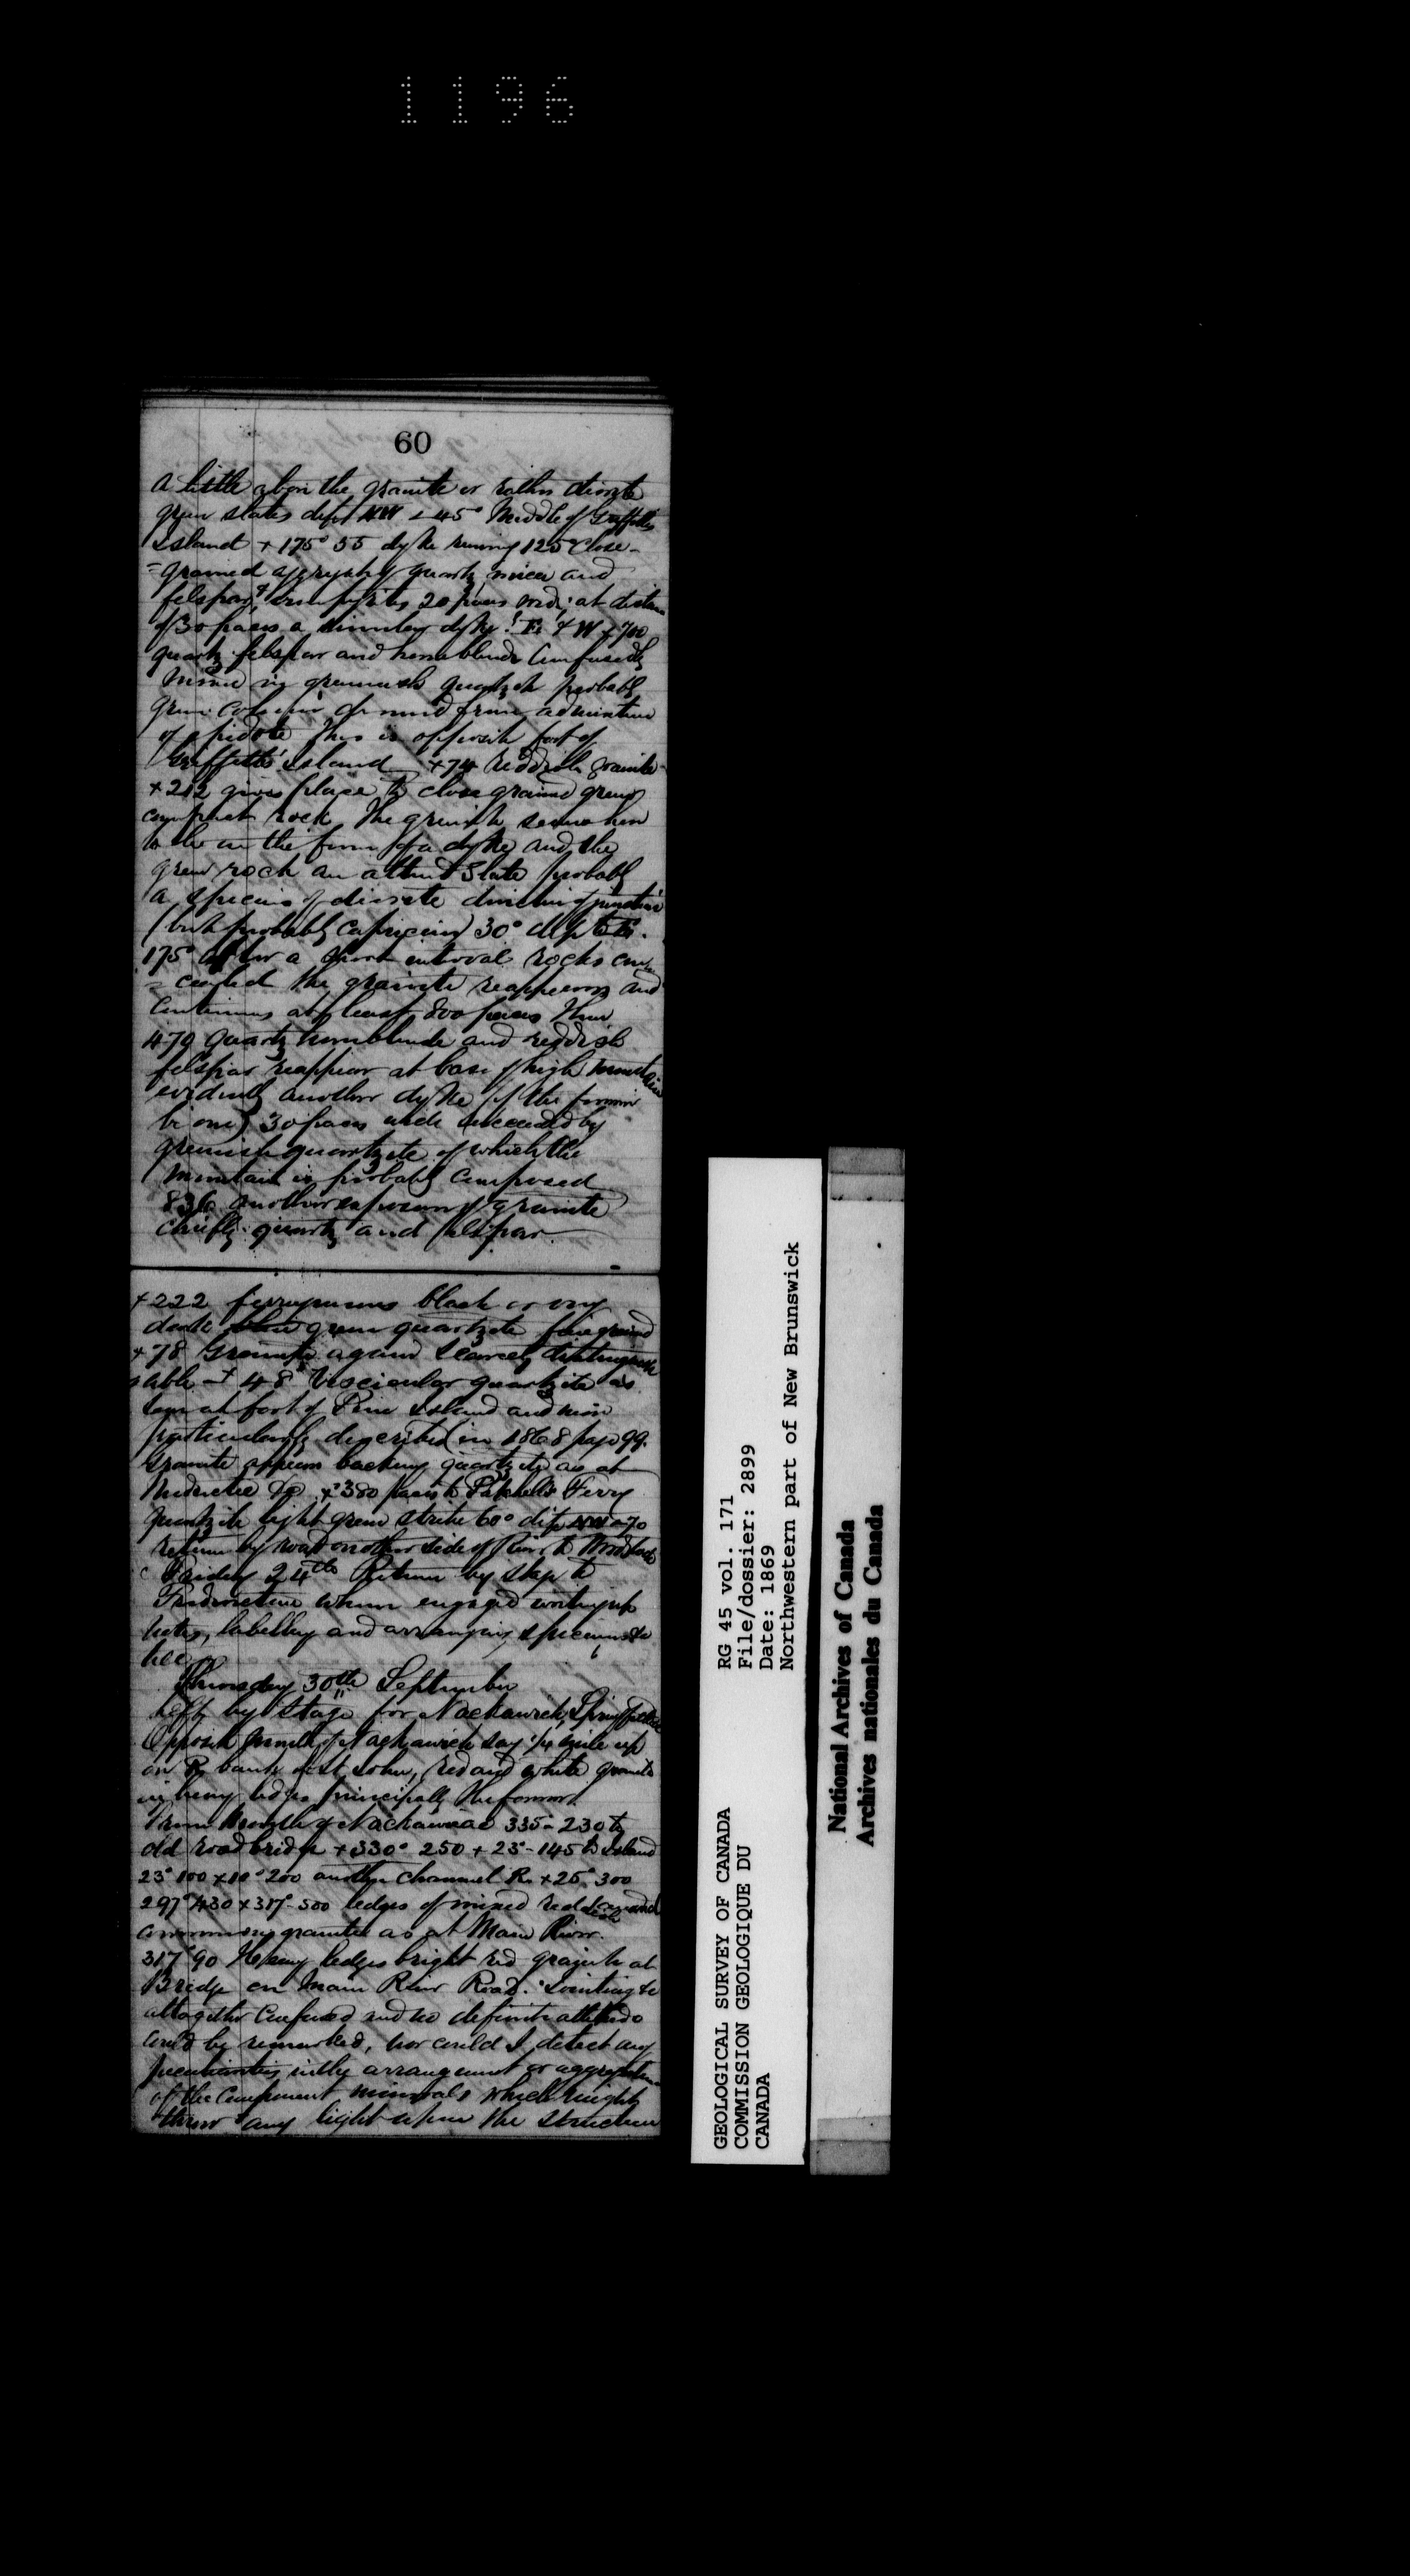 1196
60
a little above the granite or rather diorite
green slates dip NW < 45° Middle of Griffiths
Island + 175° 55 dyke running 125° Close-
=grained quartz mica and
felspar & iron pyrites 20 paces wide; at distance
of 30 paces a similar dyke E & W + 700
quartz felspar and hornblende Confusedly
mixed in greenish quartzite probably
green from admixture
of epidote This is opposite foot of
Griffiths Island + 74 reddish granite
+ 212 gives place to close grained green
compact rock The granite seems here
to be in the form of a dyke and the
green rock an altered Slate probably
a species of diorite direction of junction
(but probably capricious) 30° dip
175° After a short interval rocks con
=cealed the granite reappears and
Continues at least 800 paces Then
470 Quartz hornblende and reddish
felspar reappear at base of high mountain
evidently another dyke (if the former
be one) 30 paces wide succeeded by
greenish quartzite of which the
Mountain is probably Composed
836 another exposure of granite
chiefly quartz and felspar
+222 ferruginous black or very
dark green quartzite fine grained
+78 Granite again scarcely distinguish
=able + 48 Vesicular quartzite as
seen at foot of Pine Island and more
particularly described in 1868 page 99.
Granite appears backing quartzite as at
+ 380 paces to Ferry
Quartzite light green strike 60° dip 70
return by road on other side of River to Woodstock
Friday 24th Return by stage to
Fredericton where engaged writing up
notes, labelling and arranging specimens &c
&c
Thursday 30th September
Left by Stage for Nackawick, Springfield
Opposite mouth of Nackawick say 1/4 mile up
on R. bank of St John, red and white granite
in heavy ledges principally the former
From Mouth of Nackawick 335° 230 to
old road bridge + 330° 250 + 23° 145 to Island
23° 100 + 10° 200 another Channel R. + 25° 300
297° 430 + 317° 500 ledges of mixed reddish and
common granite as at Main River.
317° 90 Heavy ledges bright red granite at
Bridge on Main River Road. Jointing &c
altogether Confused and no definite attitude
could be remarked, nor could I detect any
peculiarities in the arrangement or aggregation
of the Component minerals which might
throw any light upon the structure
GEOLOGICAL SURVEY OF CANADA
COMMISSION GEOLOGIQUE DU
CANADA
RG 45 vol. 171
File/dossier: 2899
Date: 1869
Northwestern part of New Brunswick
National Archives of Canada
Archives nationales du Canada